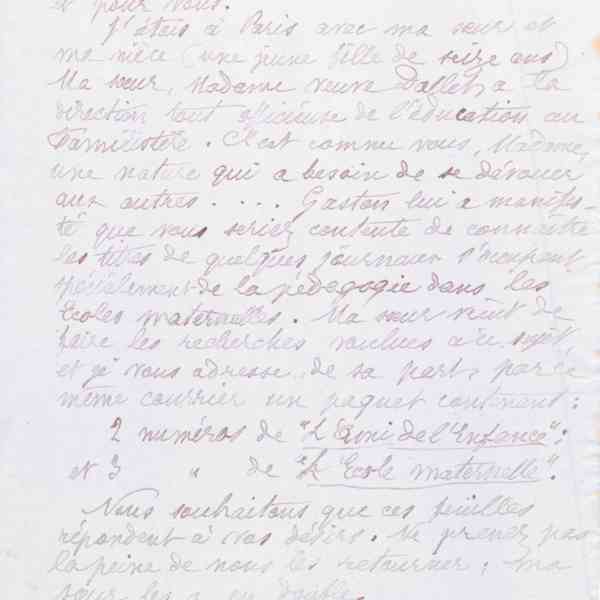 et pour vous.
J'étais à Paris avec ma sœur et
ma nièce (une jeune fille de seize ans)
Ma sœur, Madame veuve Dallet, a la
direction tout officieuse de l'éducation au
Familistère. C'est comme vous, Madame,
une nature qui a besoin de se dévouer
aux autres.... Gaston lui a manifes-
té que vous seriez contente de connaître
les titres de quelques journaux s'occupant
spécialement de la pédagogie dans les
Ecoles maternelles. Ma sœur vient de
faire les recherches voulues à ce sujet
et je vous adresse de sa part, par ce
même courrier un paquet contenant:
2 numéros de "L'Ami de l'Enfance";
et 3 " de "L'Ecole maternelle".
Nous souhaitons que ces feuilles
répondent à vos désirs. Ne prenez pas
la peine de nous les retourner; ma
sœur les a en double.